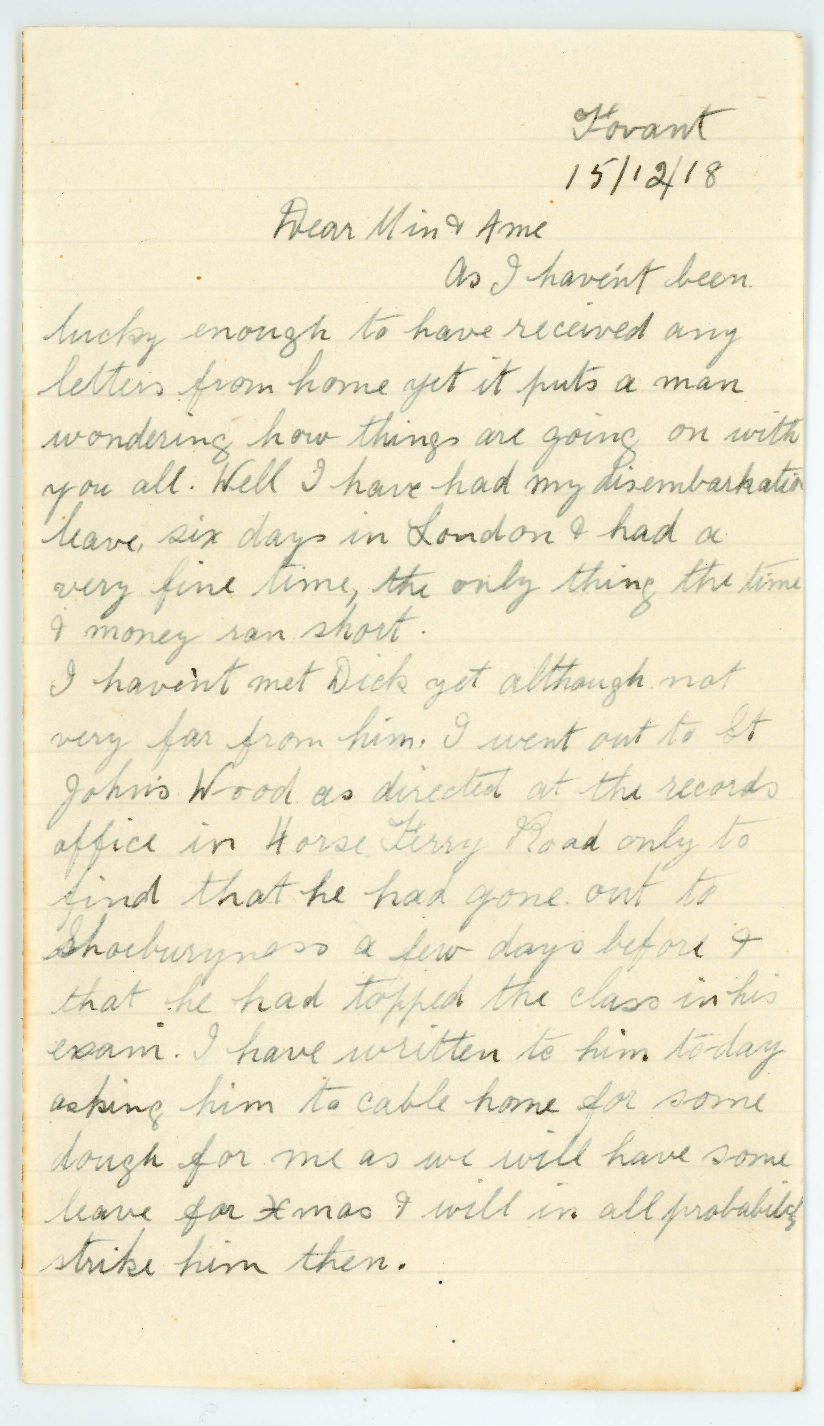 Fovant
15/12/18
Dear Min & Ame
As I haven't been
lucky enough to have received any
letters from home yet it puts a man
wondering how things are going on with
you all. Well I have had my disembarkation
leave, six days in London & had a
very fine time, the only thing the time
& money ran short.
I haven't met Dick yet although not
very far from him. I went out to St
John's Wood as directed at the records
office in Horse Ferry Road only to
find that he had gone out to
Shoeburyness a few days before &
that he had topped the class in his
exam. I have written to him to-day
asking him to cable home for some
dough for me as we will have some
leave for Xmas & will in all probability
strike him then.